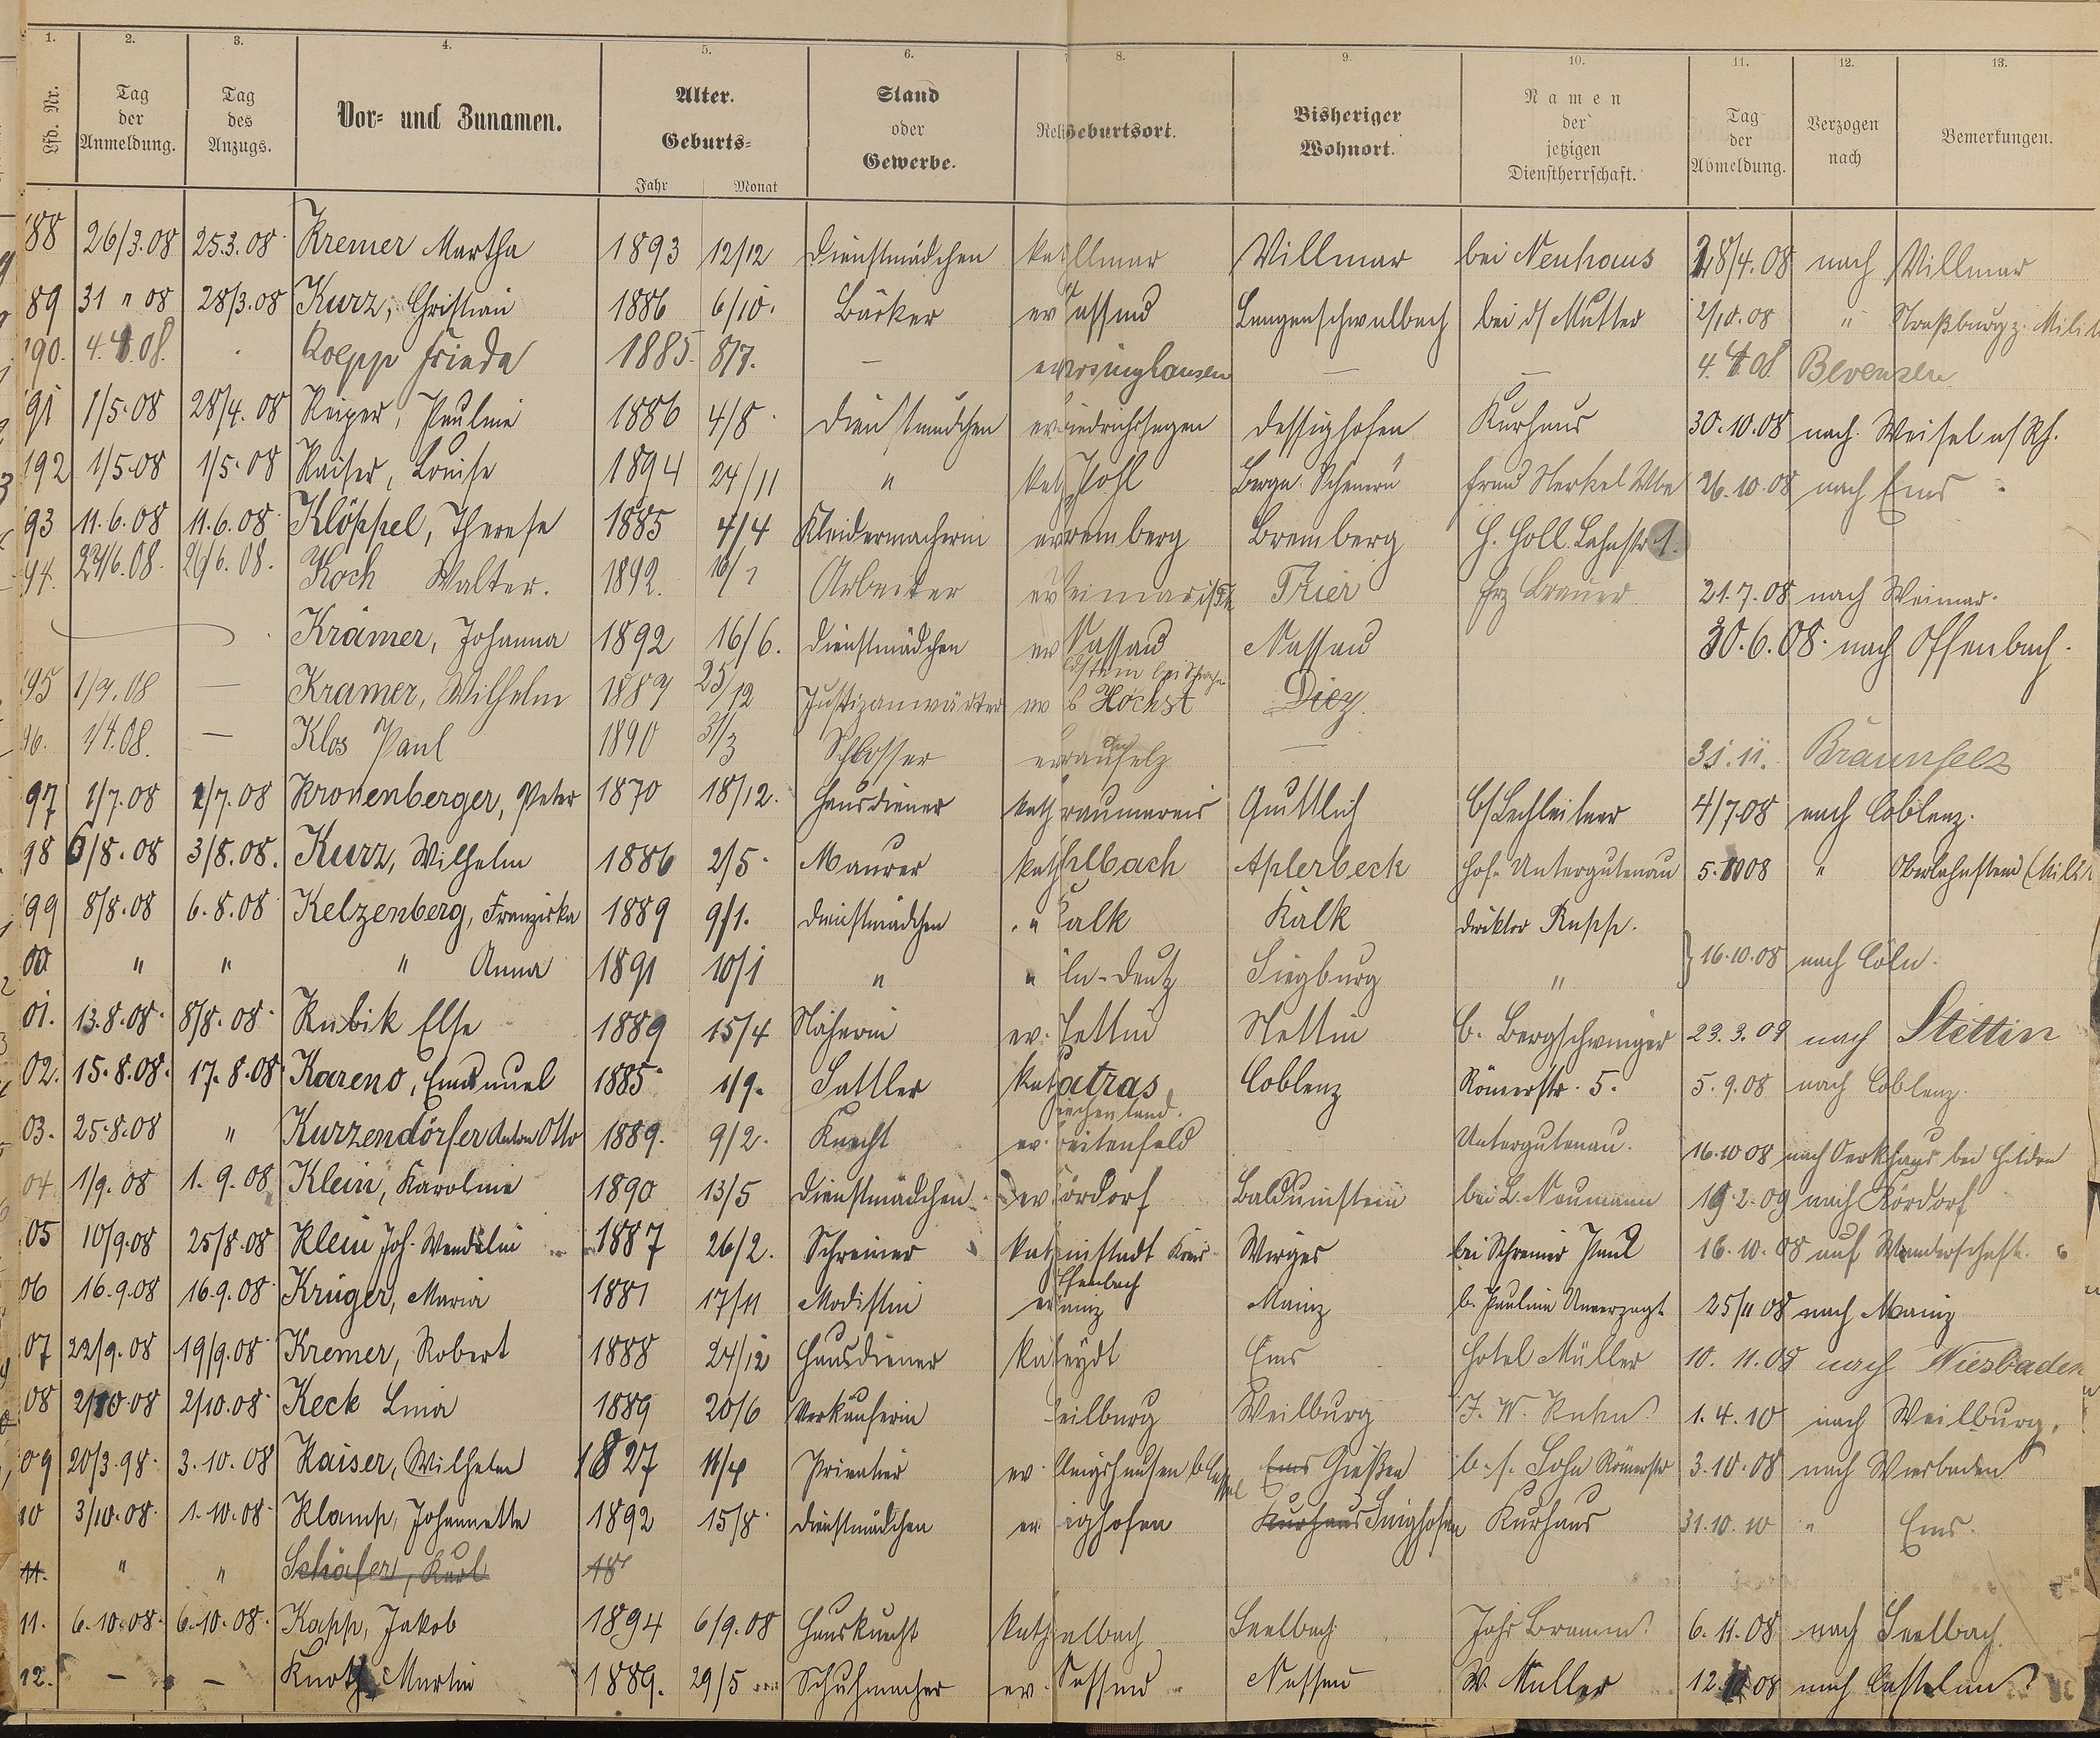 1. 2. 3. 4. 5. 6. 8. 9. 10. 11. 12. 13.
Lfd. Nr. Tag der Anmeldung. Tag des Anzugs. Vor- und Zunamen. Alter. Geburts- Jahr Monat Stand oder Gewerbe. Reli Geburtsort. Bisheriger Wohnort. Namen der jetzigen Dienstherrschaft. Tag der Abmeldung. Verzogen nach Bemerkungen.
88 26/3.08 25.3.08 Kremer Martha 1893 12/12 Dienstmädchen kat llmar Villmar bei Neuhaus 28/4.08 nach Villmar
89 31 " 08 28/3.08 Kurz, Christian 1886 6/10. Bäcker ev assau Langenschwalbach bei d/ Mutter 2/10.08 " Straßburg z. Milit
90. 4.4.08. Roepp Frieda 1885. 8/7. — ev rsinghausen — — 4.4.08 Bevensen
91 1/5.08 28/4.08 Keiper, Pauline 1886 4/8. Dienstmädchen ev iedrichssegen Dessighofen Kurhaus 30.10.08 nach Weisel a/Rh.
192 1/5.08 1/5.08 Kaiser, Louise 1894 24/11 " kat Pohl Bergn. Scheuern Frau Merkel Wwe 26.10.08 nach Ems
93 11.6.08 11.6.08 Klöppel, Therese 1885 4/4 Kleidermacherin ev remberg Bremberg H. Holl. Lahnstr 1.
94. 24/6.08. 26/6.08. Koch Walter. 1892. 16/7 Arbeiter ev eimar i/Th Trier Frz Brauer 21.7.08 nach Weimar.
Krämer, Johanna 1892 16/6. Dienstmädchen ev Nassau Nassau 30.6.08. nach Offenbach.
95 1/9.08 — Kramer, Wilhelm 1889 25/12 Justizanwärter ev b Höchst Diez
96. 1/4.08. — Klos Paul 1890 31/3 Schlosser ev raunfelz — 31.11. Braunfels
97 1/7.08 1/7.08 Kronenberger, Peter 1870 18/12. Hausdiener kath raumareis Quittlich b/ Lechleitner 4/7.08 nach Coblenz.
98 6/8.08 3/8.08. Kurz, Wilhelm 1886 2/5. Maurer kath hlbach Aplerbeck Hof. Untergutenau 5.10 08 " Oberlahnstein (Milit
99 8/8.08 6.8.08 Kelzenberg, Franziska 1889 9/1. Dienstmädchen " Kalk Kalk Direktor Rupp.
00 " " " Anna 1891 10/1 " " ln-Deutz Siegburg " } 16.10.08 nach Cöln.
01. 13.8.08. 8/8.08. Kubik Else 1889 15/4 Näherin ev. Stettin Stettin b. Bergschwinger 23.3.09 nach Stettin
02. 15.8.08. 17.8.08. Kareno, Emanuel 1885 1/9. Sattler kat atras Coblenz Römerstr. 5. 5.9.08 nach Coblenz.
iechenland.
03. 25.8.08 " Kurzendörfer Anton Otto 1889. 9/2. Knecht ev. reitenfeld Untergutenau. 16.10 08 nach Oerkhaus bei Hilden
04 1/9.08 1.9.08 Klein, Karoline 1890 13/5 Dienstmädchen ev ördorf Balduinstein bei L. Neumann 19.2.09 nach Kördorf
05 10/9.08 25/8.08 Klein Joh. Wendelin 1887 26/2. Schreiner kat instadt Kreis Wirges bei Schreiner Paul 16.10.08 auf Wanderschaft.
ffenbach
06 16.9.08 16.9.08 Krüger, Maria 1881 17/11 Modistin ev ainz Mainz b. Pauline Unverzagt 25/11 08 nach Mainz
07 22/9.08 19/9.08 Kremer, Robert 1888 24/12 Hausdiener kat eydt Ems Hotel Müller 10.11.08 nach Wiesbaden
08 2/10.08 2/10.08 Keck Lina 1889 20/6 Verkäuferin eilburg Weilburg J. W. Kuhn 1.4.10 nach Weilburg.
09 20/3.98. 3.10.08 Kaiser, Wilhelm 1827 11/4 Privatier ev. Ems Gießen b. s. Sohn Römerstr 3.10.08 nach Wiesbaden
10 3/10.08. 1.10.08. Klamp, Johannette 1892 15/8. Dienstmädchen ev ighofen Kurhaus Singhofen Kurhaus 31.10.10 " Ems.
11. " " Schäfer, Karl 18
11. 6.10.08. 6.10.08. Kapp, Jakob 1894 6/9.08 Hausknecht kath elbach Seelbach Johs Bramm 6.11.08 nach Seelbach.
12. — — Knoth Martin 1889. 29/5 Schuhmacher ev. Nassau Nassau W. Müller 12.11 08 nach Castelaun